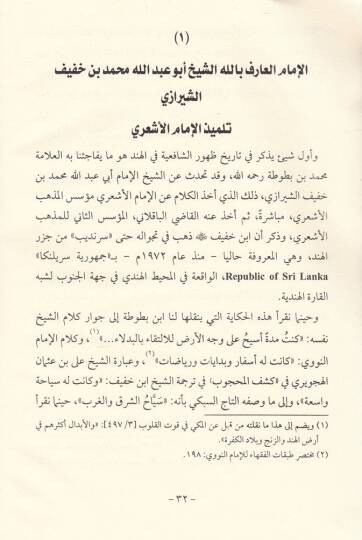 (١)
الإمام العارف بالله الشيخ أبو عبد الله محمد بن خفيف
الشيرازي
تلميذ الإمام الأشعري
وأول شيئ يذكر في تاريخ ظهور الشافعية في الهند هو ما يفاجئنا به العلامة
محمد بن بطوطة رحمه الله، وقد تحدث عن الشيخ الإمام أبي عبد الله محمد بن
خفيف الشيرازي، ذلك الذي أخذ الكلام عن الإمام الأشعري مؤسس المذهب
الأشعري، مباشرةً، ثم أخذ عنه القاضي الباقلاني، المؤسس الثاني للمذهب
الأشعري، وذكر أن ابن خفيف ذهب في تجواله حتى «سرنديب» من جزر
الهند، وهي المعروفة حاليا – منذ عام ١٩٧٢م – بـ«جمهورية سريلنكا»
Republic of Sri Lanka، الواقعة في المحيط الهندي في جهة الجنوب لشبه
القارة الهندية.
وحينما نقرأ هذه الحكاية التي ينقلها لنا ابن بطوطة إلى جوار كلام الشيخ
نفسه: «كنتُ مدةً أسيحُ على وجه الأرض للالتقاء بالبدلاء...»(١)، وكلام الإمام
النووي: «كانت له أسفار وبدايات ورياضات»(٢)، وعبارة الشيخ على بن عثمان
الهجويري في «كشف المحجوب» في ترجمة الشيخ ابن خفيف: «وكانت له سياحة
واسعة»، وإلى ما وصفه التاج السبكي بأنه: «سَيَّاحُ الشرق والغرب»، حينما نقرأ
(١) ويضم إلى هذا ما نقلته من قبل عن المكي في قوت القلوب [٣/ ٤٩٧]: «والأبدال أكثرهم في
أرض الهند والزنج وبلاد الكفرة».
(٢) مختصر طبقات الفقهاء للإمام النووي: ١٩٨.
- ٣٢ -